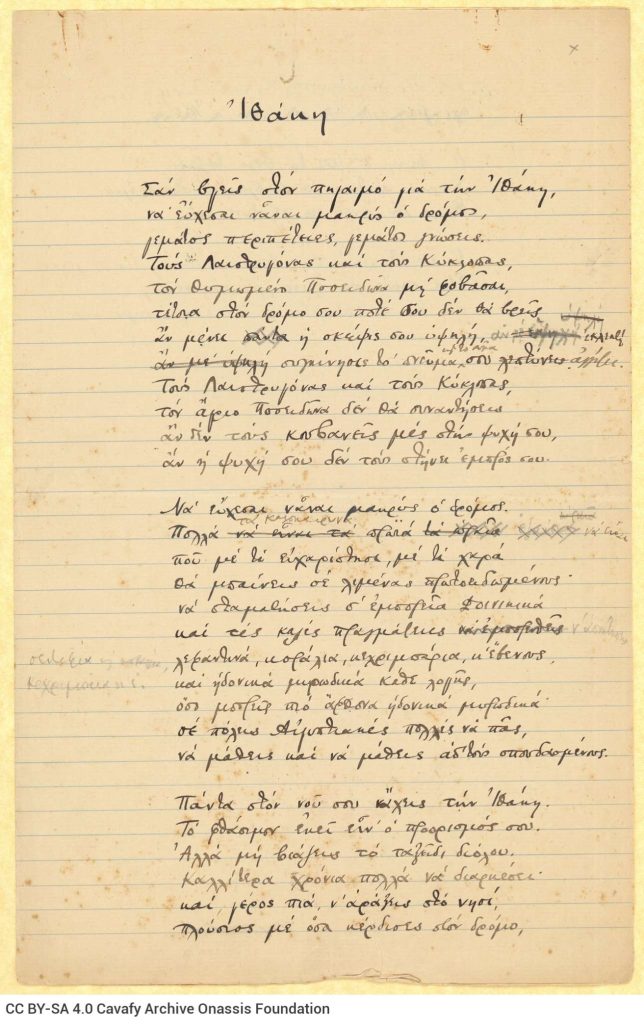 Ἰθάκη
Σὰν βγεῖς στὸν πηγαιμὸ γιὰ τὴν Ἰθάκη,
νὰ εὔχεσαι νἆναι μακρὺς ὁ δρόμος,
γεμάτος περιπέτειες, γεμάτος γνώσεις.
Τοὺς Λαιστρυγόνας καὶ τοὺς Κύκλωπας,
τὸν θυμωμένο Ποσειδῶνα μὴ φοβᾶσαι,
τέτοια στὸν δρόμο σου ποτέ σου δὲν θὰ βρεῖς,
ἂν μένει πάντα ἡ σκέψις σου ὑψηλή, ἂν ἐκλεκτὴ
ἂν μὲ ὑψηλὴ συγκίνησις τὸ πνεῦμα καὶ τὸ σῶμα σου λεπτύνεις ἀγγίζει.
Τοὺς Λαιστρυγόνας καὶ τοὺς Κύκλωπας,
τὸν ἄγριο Ποσειδῶνα δὲν θὰ συναντήσεις
ἂν δὲν τοὺς κουβανεῖς μὲς στὴν ψυχή σου,
ἂν ἡ ψυχή σου δὲν τοὺς στήνει ἐμπρός σου.
Νὰ εὔχεσαι νἆναι μακρὺς ὁ δρόμος.
τὰ καλοκαιρινὰ
Πολλὰ νὰ εἶναι τὰ πρωϊὰ νὰ εἶναι
ποῦ μὲ τί εὐχαρίστησι, μὲ τί χαρὰ
θὰ μπαίνεις σὲ λιμένας πρωτοειδωμένους·
νὰ σταματήσεις σ' ἐμπορεῖα Φοινικικὰ
καὶ τὲς καλὲς πραγμάτειες νὰ ἐμπορευθεῖς ν' ἀποκτήσεις
σεντέφια καὶ
λεχρι
κεχριμπάρια, κοράλλια, κεχριμπάρια, κ' ἔβενους,
καὶ ἡδονικὰ μυρωδικὰ κάθε λογῆς,
ὅσο μπορεῖς πιὸ ἄφθονα ἡδονικὰ μυρωδικά·
σὲ πόλεις Αἰγυπτιακὲς πολλὲς νὰ πᾶς,
νὰ μάθεις καὶ νὰ μάθεις ἀπ' τοὺς σπουδασμένους.
Πάντα στὸν νοῦ σου νἄχεις τὴν Ἰθάκη.
Τὸ φθάσιμον ἐκεῖ εἶν' ὁ προορισμός σου.
Ἀλλὰ μὴ βιάζεις τὸ ταξεῖδι διόλου.
Καλλίτερα χρόνια πολλὰ νὰ διαρκέσει·
καὶ γέρος πιὰ ν' ἀράξεις στὸ νησί,
πλούσιος μὲ ὅσα κέρδισες στὸν δρόμο,
CC BY-SA 4.0 Cavafy Archive Onassis Foundation